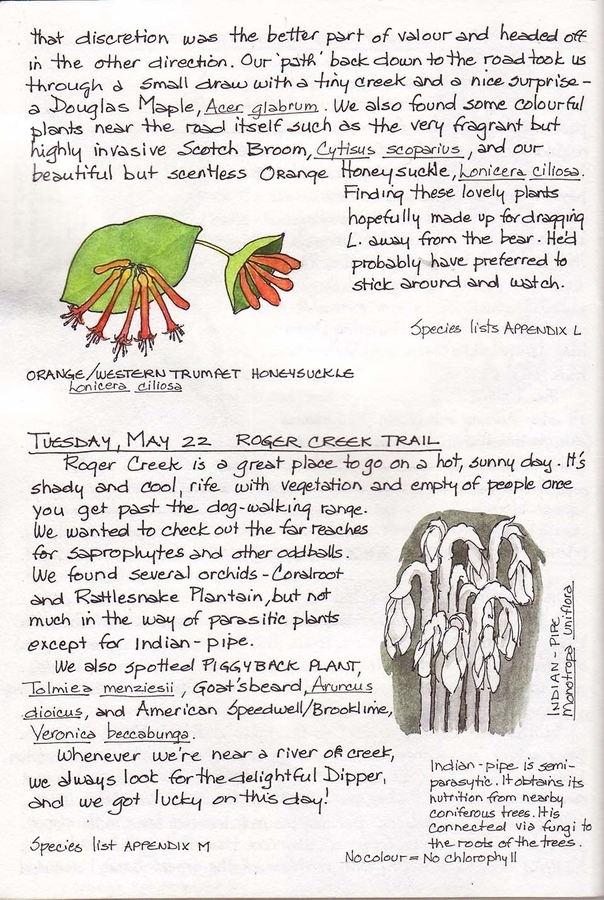 that discretion was the better part of valour and headed off
in the other direction. Our 'path' back down to the road took us
through a small draw with a tiny creek and a nice surprise -
a Douglas Maple, Acer glabrum. We also found some colourful
plants near the road itself such as the very fragrant but
highly invasive Scotch Broom, Cytisus scoparius, and our
beautiful but scentless Orange Honeysuckle, Lonicera ciliosa.
Finding these lovely plants
hopefully made up for dragging
L. away from the bear. He'd
probably have preferred to
stick around and watch.
Species lists APPENDIX L
ORANGE/WESTERN TRUMPET HONEYSUCKLE
Lonicera ciliosa
TUESDAY, MAY 22 ROGER CREEK TRAIL
Roger Creek is a great place to go on a hot, sunny day. It's
shady and cool, rife with vegetation and empty of people once
you get past the dog-walking range.
We wanted to check out the far reaches
for saprophytes and other oddballs.
We found several orchids - Coralroot
and Rattlesnake Plantain, but not
much in the way of parasitic plants
except for Indian-pipe.
We also spotted PIGGYBACK PLANT,
Tolmiea menziesii, Goat'sbeard, Aruncus
dioicus, and American Speedwell/Brooklime,
Veronica beccabunga.
Whenever we're near a river or creek,
we always look for the delightful Dipper,
and we got lucky on this day!
Species list APPENDIX M
INDIAN-PIPE
Monotropa uniflora
Indian-pipe is semi-
parasytic. It obtains its
nutrition from nearby
coniferous trees. It is
connected via fungi to
the roots of the trees.
No colour = No chlorophyll